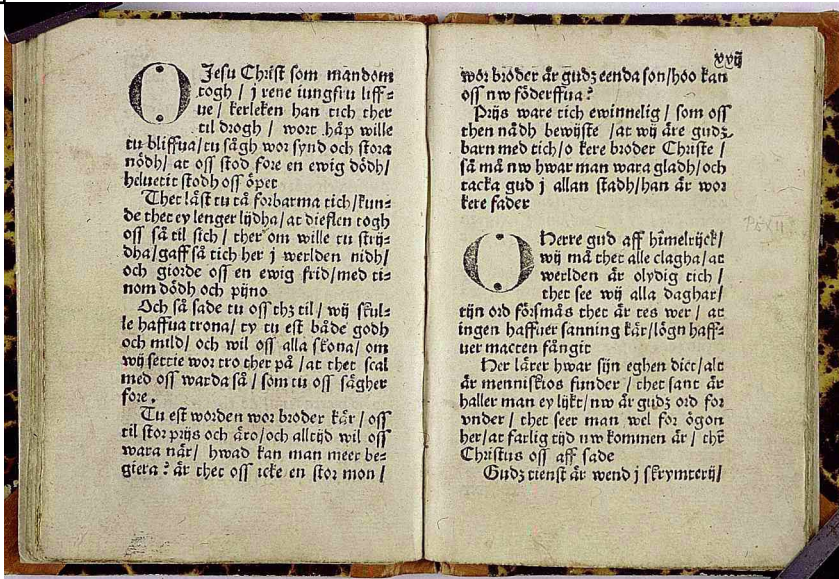 O Jesu Christ som mandom
togh / j rene iungfru liff⸗
ue / kerleken han tich ther
til drogh / wort håp wille
tu bliffua / tu sågh wor synd och stora
nödh / at oss stod fore en ewig dödh /
heluetit stodh oss öpet
Thet läst tu tå forbarma tich / kun⸗
de thet ey lenger lijdha / at dieflen togh
oss så til sich / ther om wille tu strij⸗
dha / gaff så tich her j werlden nidh /
och giorde oss en ewig frid / med ti⸗
nom dödh och pijno
Och så sade tu oss thz til / wij skul⸗
le haffua trona / ty tu est både godh
och mild / och wil oss alla skona / om
wij settie wor tro ther på / at thet scal
med oss warda så / som tu oss sägher
fore.
Tu est worden wor broder kär / oss
til stor prijs och äro / och alltijd wil oss
wara när / hwad kan man meer be⸗
giera? är thet oss icke en stor mon /
xxij
wor broder är gudz eenda son / hoo kan
oss nw föderffua?
Prijs ware tich ewinnelig / som oss
then nådh bewijste / at wij äre gudz
barn med tich / o kere broder Christe /
så må nw hwar man wara gladh / och
tacka gud j allan stadh / han är wor
kere fader
O Herre gud aff himelrijck /
wij må thet alle clagha / at
werlden är olydig tich /
thet see wij alla daghar /
tijn ord försmås thet är tes wer / at
ingen haffuer sanning kär / lögn haff⸗
uer macten fångit
Her lärer hwar sijn eghen dict / alt
är menniskios funder / thet sant är
haller man ey lijkt / nw är gudz ord for
vnder / thet seer man wel for ögon
her / at farlig tijd nw kommen är / thē
Christus oss aff sade
Gudz tienst är wend j skrymterij /